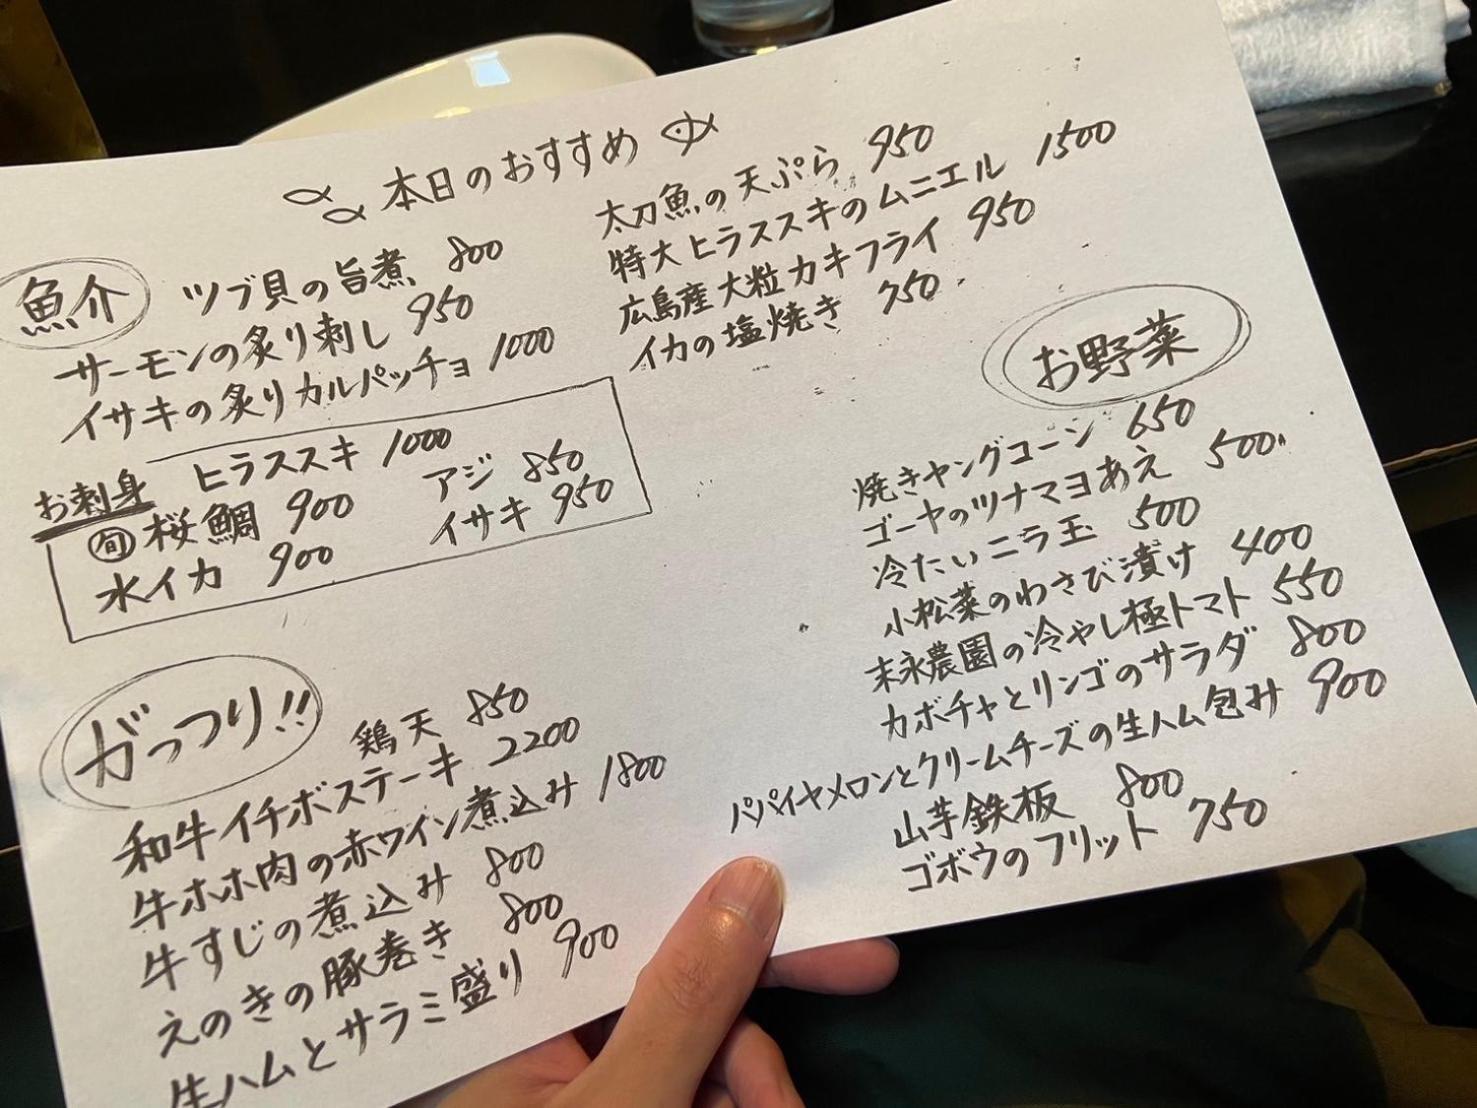 本日のおすすめ
魚介
ツブ貝の旨煮 800
サーモンの炙り刺し 950
イサキの炙りカルパッチョ 1000
太刀魚の天ぷら 950
特大ヒラススキのムニエル 1500
広島産大粒カキフライ 950
イカの塩焼き 750
お刺身
ヒラススキ 1000
アジ 850
旬 桜鯛 900
イサキ 950
水イカ 900
お野菜
焼きヤングコーン 650
ゴーヤのツナマヨあえ 500
冷たいニラ玉 500
小松菜のわさび漬け 400
末永農園の冷やし極トマト 550
カボチャとリンゴのサラダ 800
パパイヤメロンとクリームチーズの生ハム包み 900
山芋鉄板 800
ゴボウのフリット 750
がっつり!!
鶏天 850
和牛イチボステーキ 2200
牛ホホ肉の赤ワイン煮込み 1800
牛すじの煮込み 800
えのきの豚巻き 800
生ハムとサラミ盛り 900